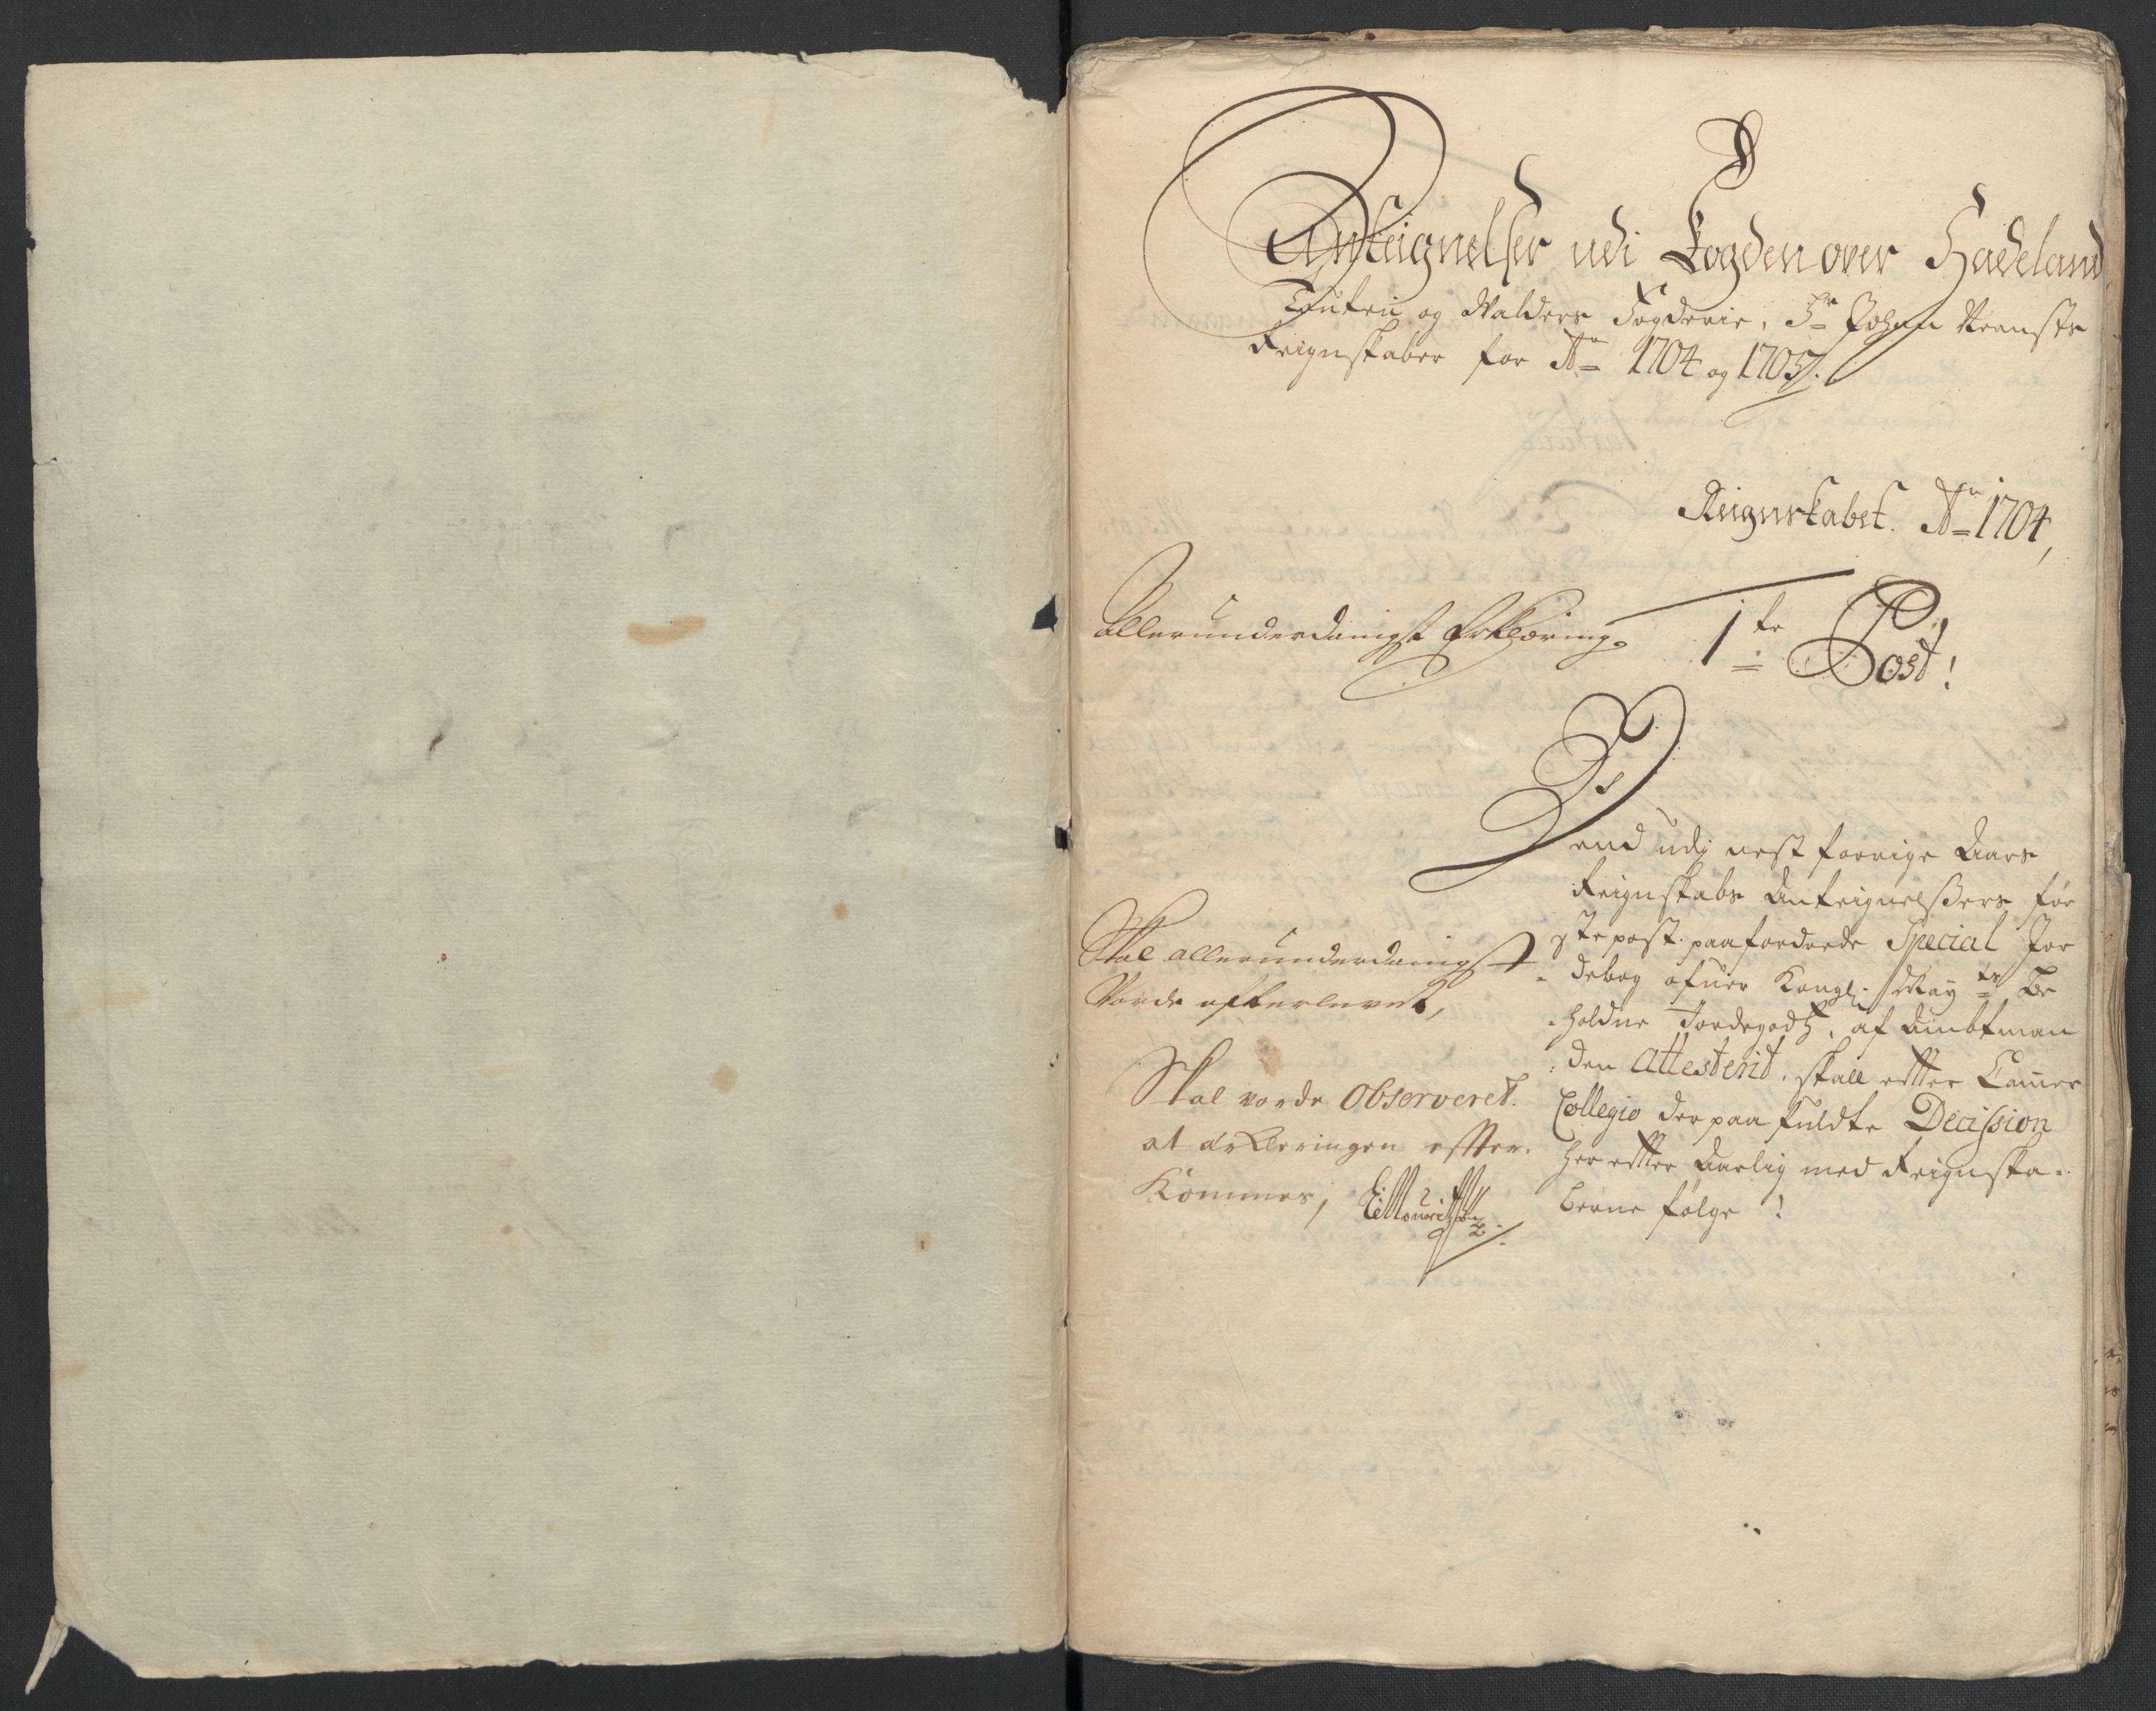 Anteignelser udi Fogden over Hadeland
Touten og Walders Fogderie, Hr Johan
Reignskaber for Ao 1704 og 1705.
Reignskabet Ao 1704,
Allerunderdanigst Erklæring.
1te Post!
Dend udj nest forrige Aars
Reignskabs Anteignelsers før
ste post paafordrede Special Jor
debog ofuer Kongl: May ts Be
holdne Jordegodtz, af Ambtman
den Attesterit, skall efter Camer
Collegio derpaa fuldte Decission
her efter Aarlig med Reignska-
berne følge!
Skal allerunderdanigst
Vorde efterlevet,
Skal vorde Observeret.
at Erkleringen efter-
kommes,